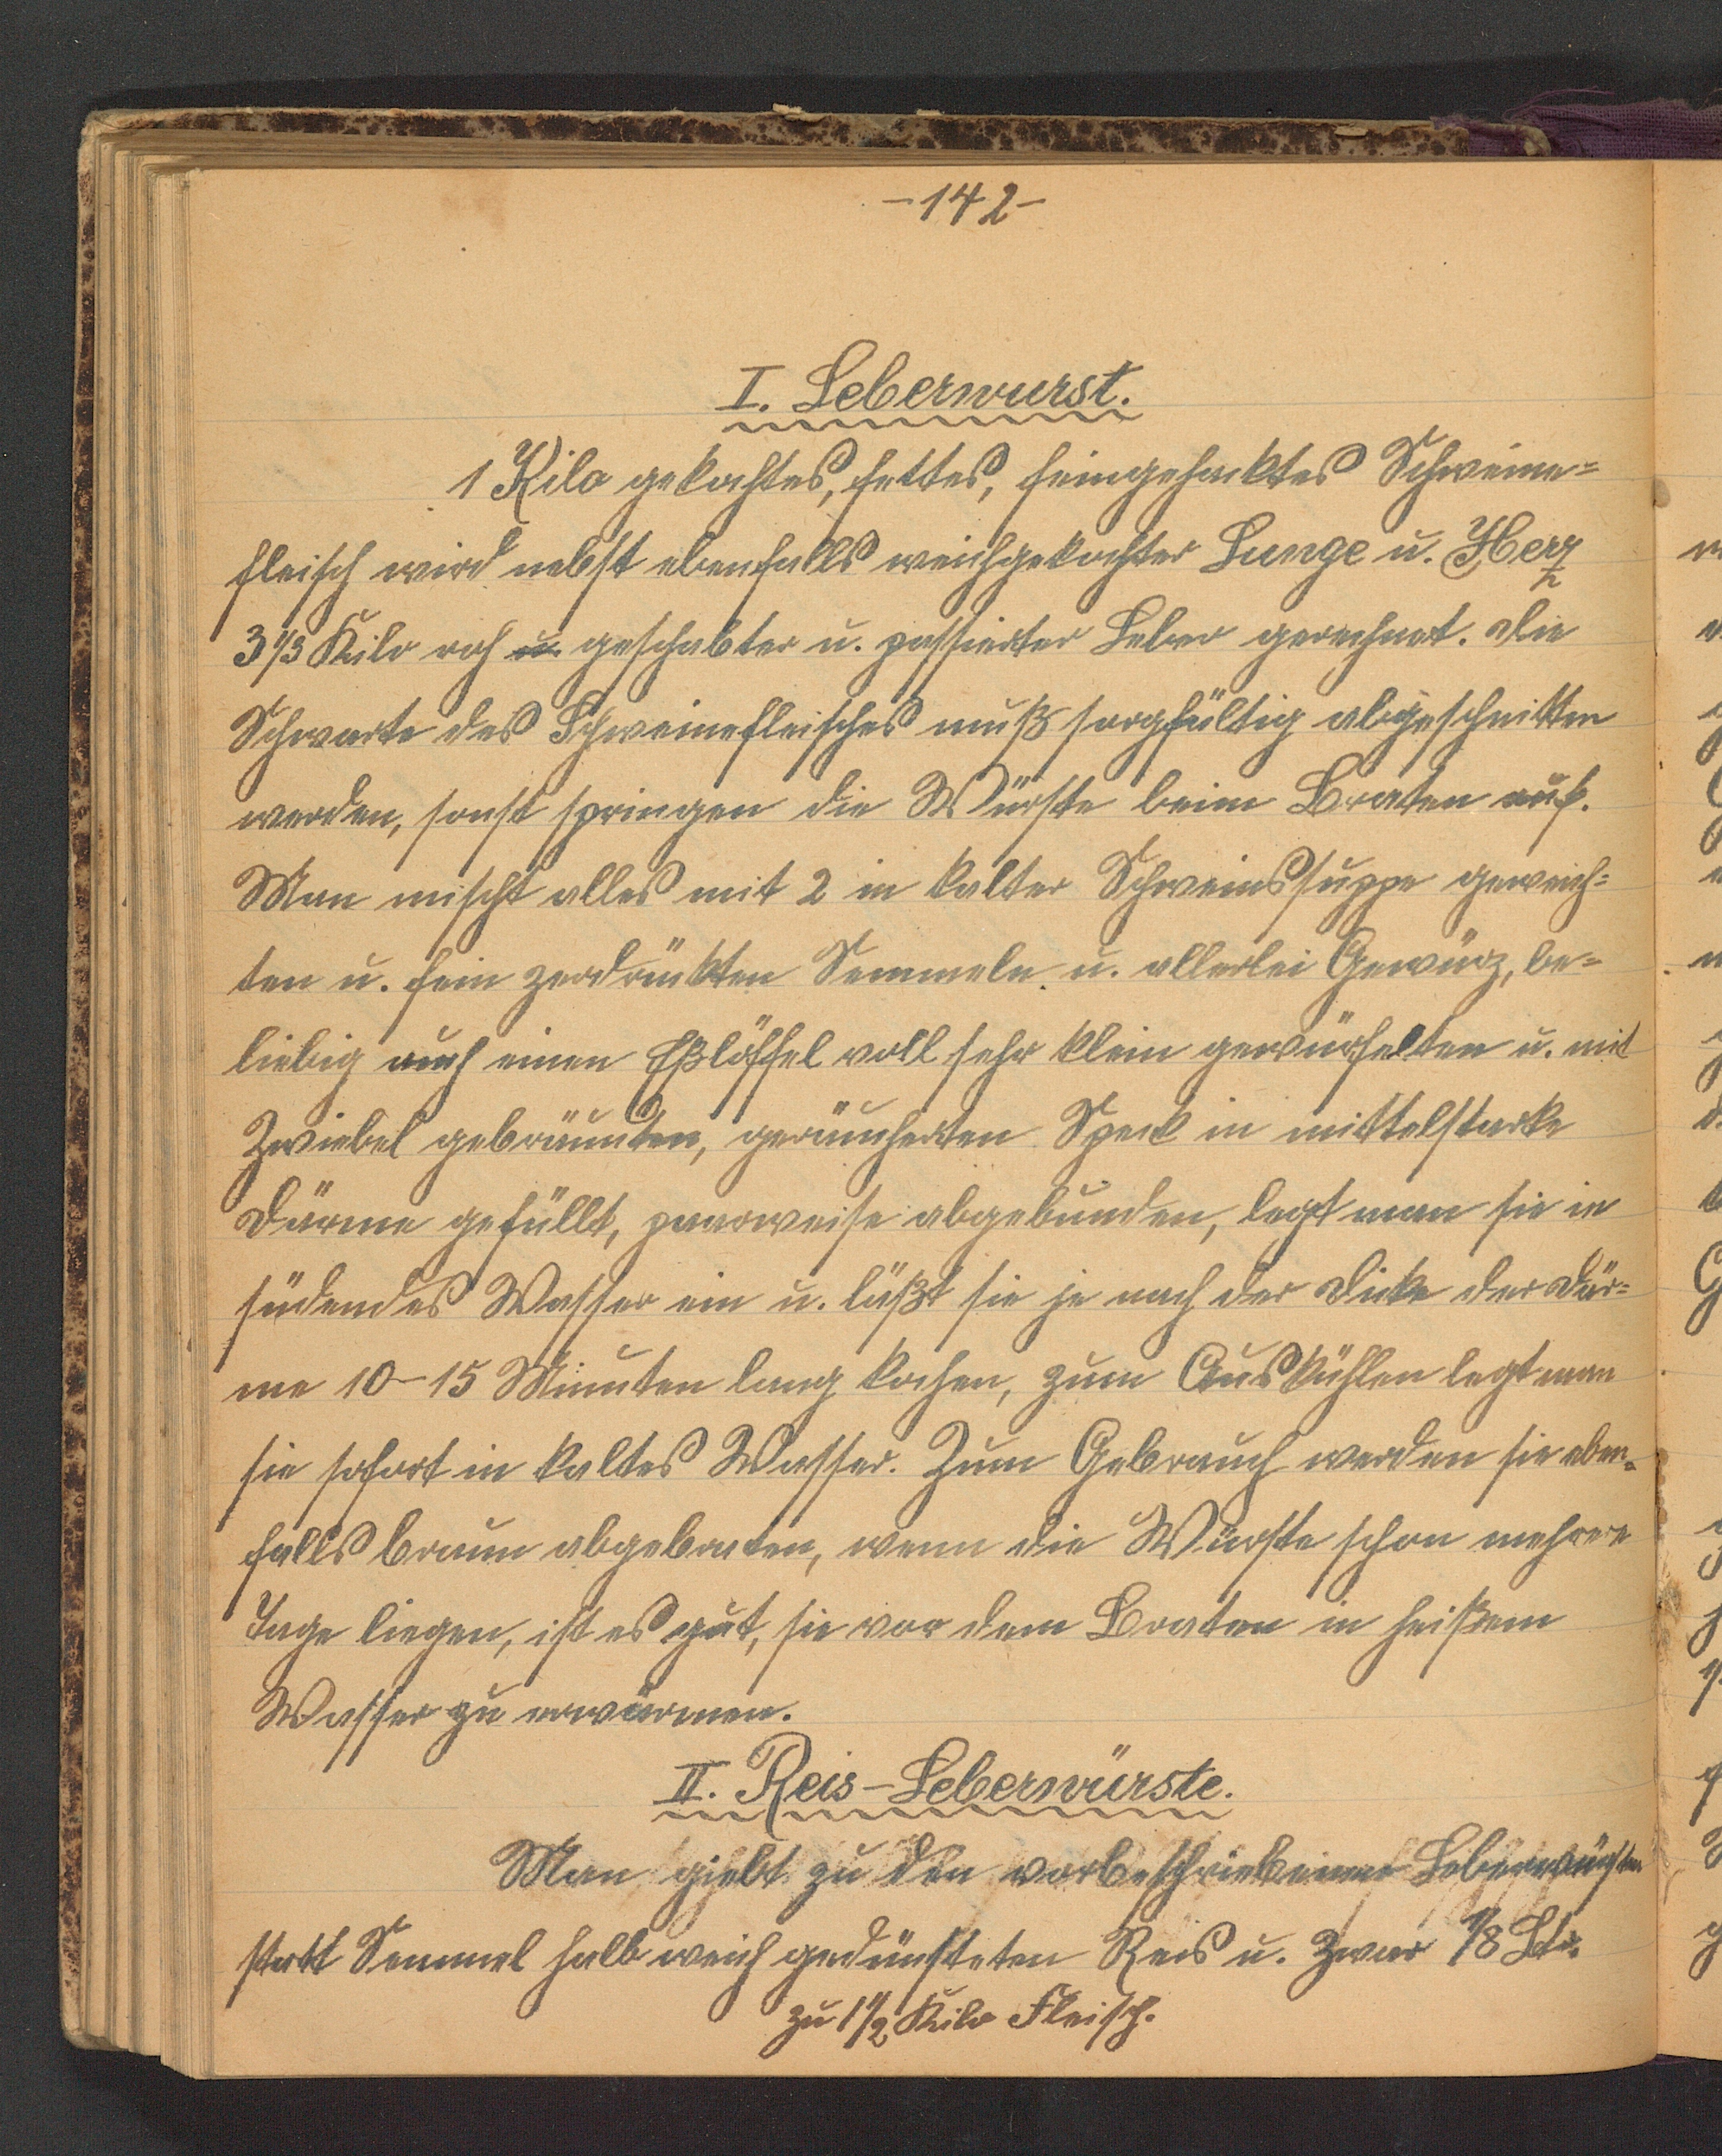 -142-
I. Leberwurst.
1 Kilo gekochtes, fettes, feingehacktes Schweine=
fleisch wird nebst ebenfalls weichgekochter Lunge u. Herz
3 1/3 Kilo roh u. geschabter u. passierter Leber gerechnet. Die
Schwarte des Schweinefleisches muß sorgfältig abgeschnitten
werden, sonst springen die Würste beim Braten auf.
Man mischt alles mit 2 in kalter Schweinssuppe geweich=
ten u. fein zerdrückten Semmeln u. allerlei Gewürz, be=
liebig auch einen Eßlöffel voll sehr klein gewürfelten u. mit
Zwiebel gebräunten, geräucherten Speck in mittelstarke
Därme gefüllt, paarweise abgebunden, legt man sie in
südendes Wasser ein u. läßt sie je nach der Dicke der Där=
me 10-15 Minuten lang kochen, zum Auskühlen legt man
sie sofort in kaltes Wasser. Zum Gebrauch werden sie eben=
falls braun abgebraten, wenn die Würste schon mehrere
Tage liegen, ist es gut, sie vor dem Braten in heißem
Wasser zu erwärmen.
II. Reis-Leberwürste.
Man giebt zu den vorbeschriebenen Leberwürsten
statt Semmel halb weich gedünsteten Reis u. zwar 1/8 Ltr.
zu 1 1/2 Kilo Fleisch.